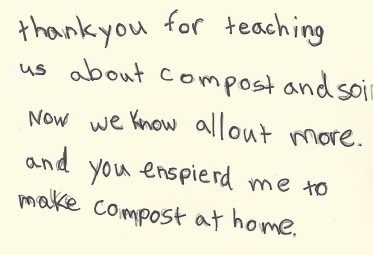 thankyou for teaching
us about compost and soil
Now we know allout more.
and you enspierd me to
make compost at home.